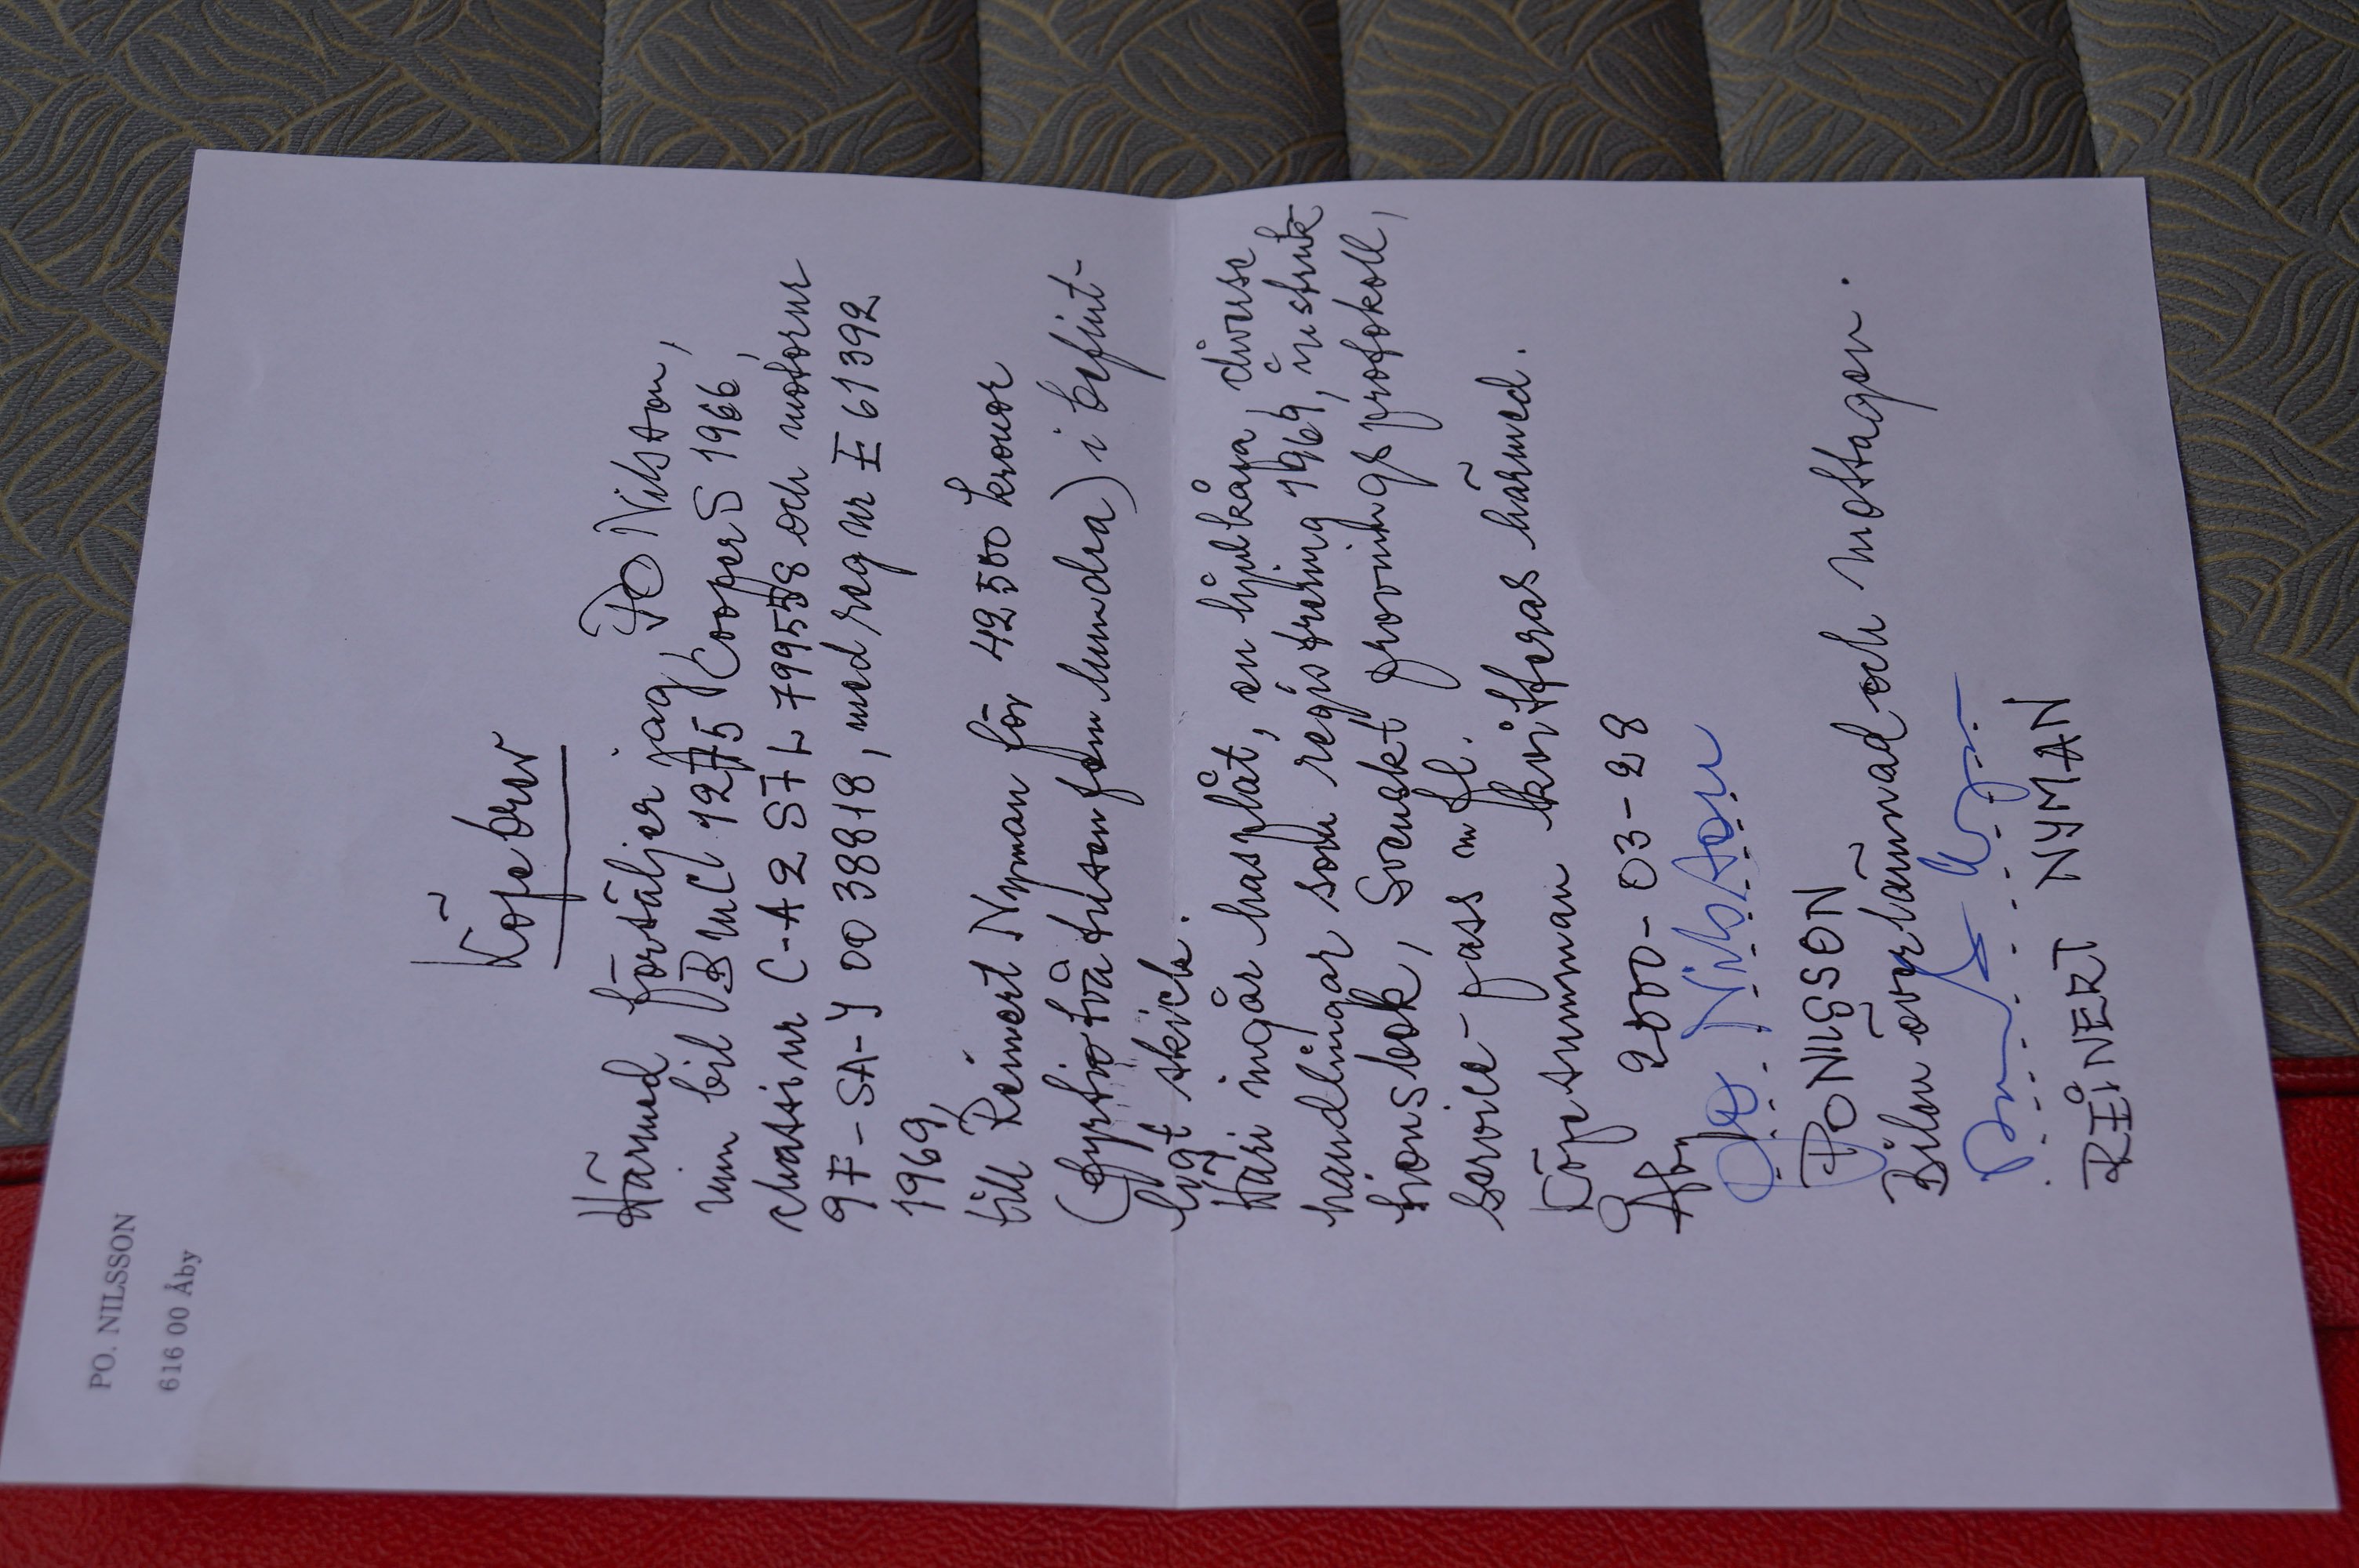 PO. NILSSON
616 00 Åby
Köpebrev
Härmed försäljer jag PO Nilsson,
min bil BMC 1275 Cooper S 1966,
chassinr C-A2S7L 799558 och motornr
9F-SA-Y 0038818, med reg nr E 61392
1969,
till Reinert Nyman för 42500 kronor
(fyrtiotvåtusenfemhundra) i befint-
ligt skick.
Häri ingår hasplåt, en hjulkåpa, diverse
handlingar som registrering 1969, instruk
tionsbok, Svenskt provningsprotokoll,
service-pass m fl.
Köpesumman kvitteras härmed.
Åby 2000-03-28
PO Nilsson
PO NILSSON
Bilen överlämnad och mottagen.
REINERT NYMAN